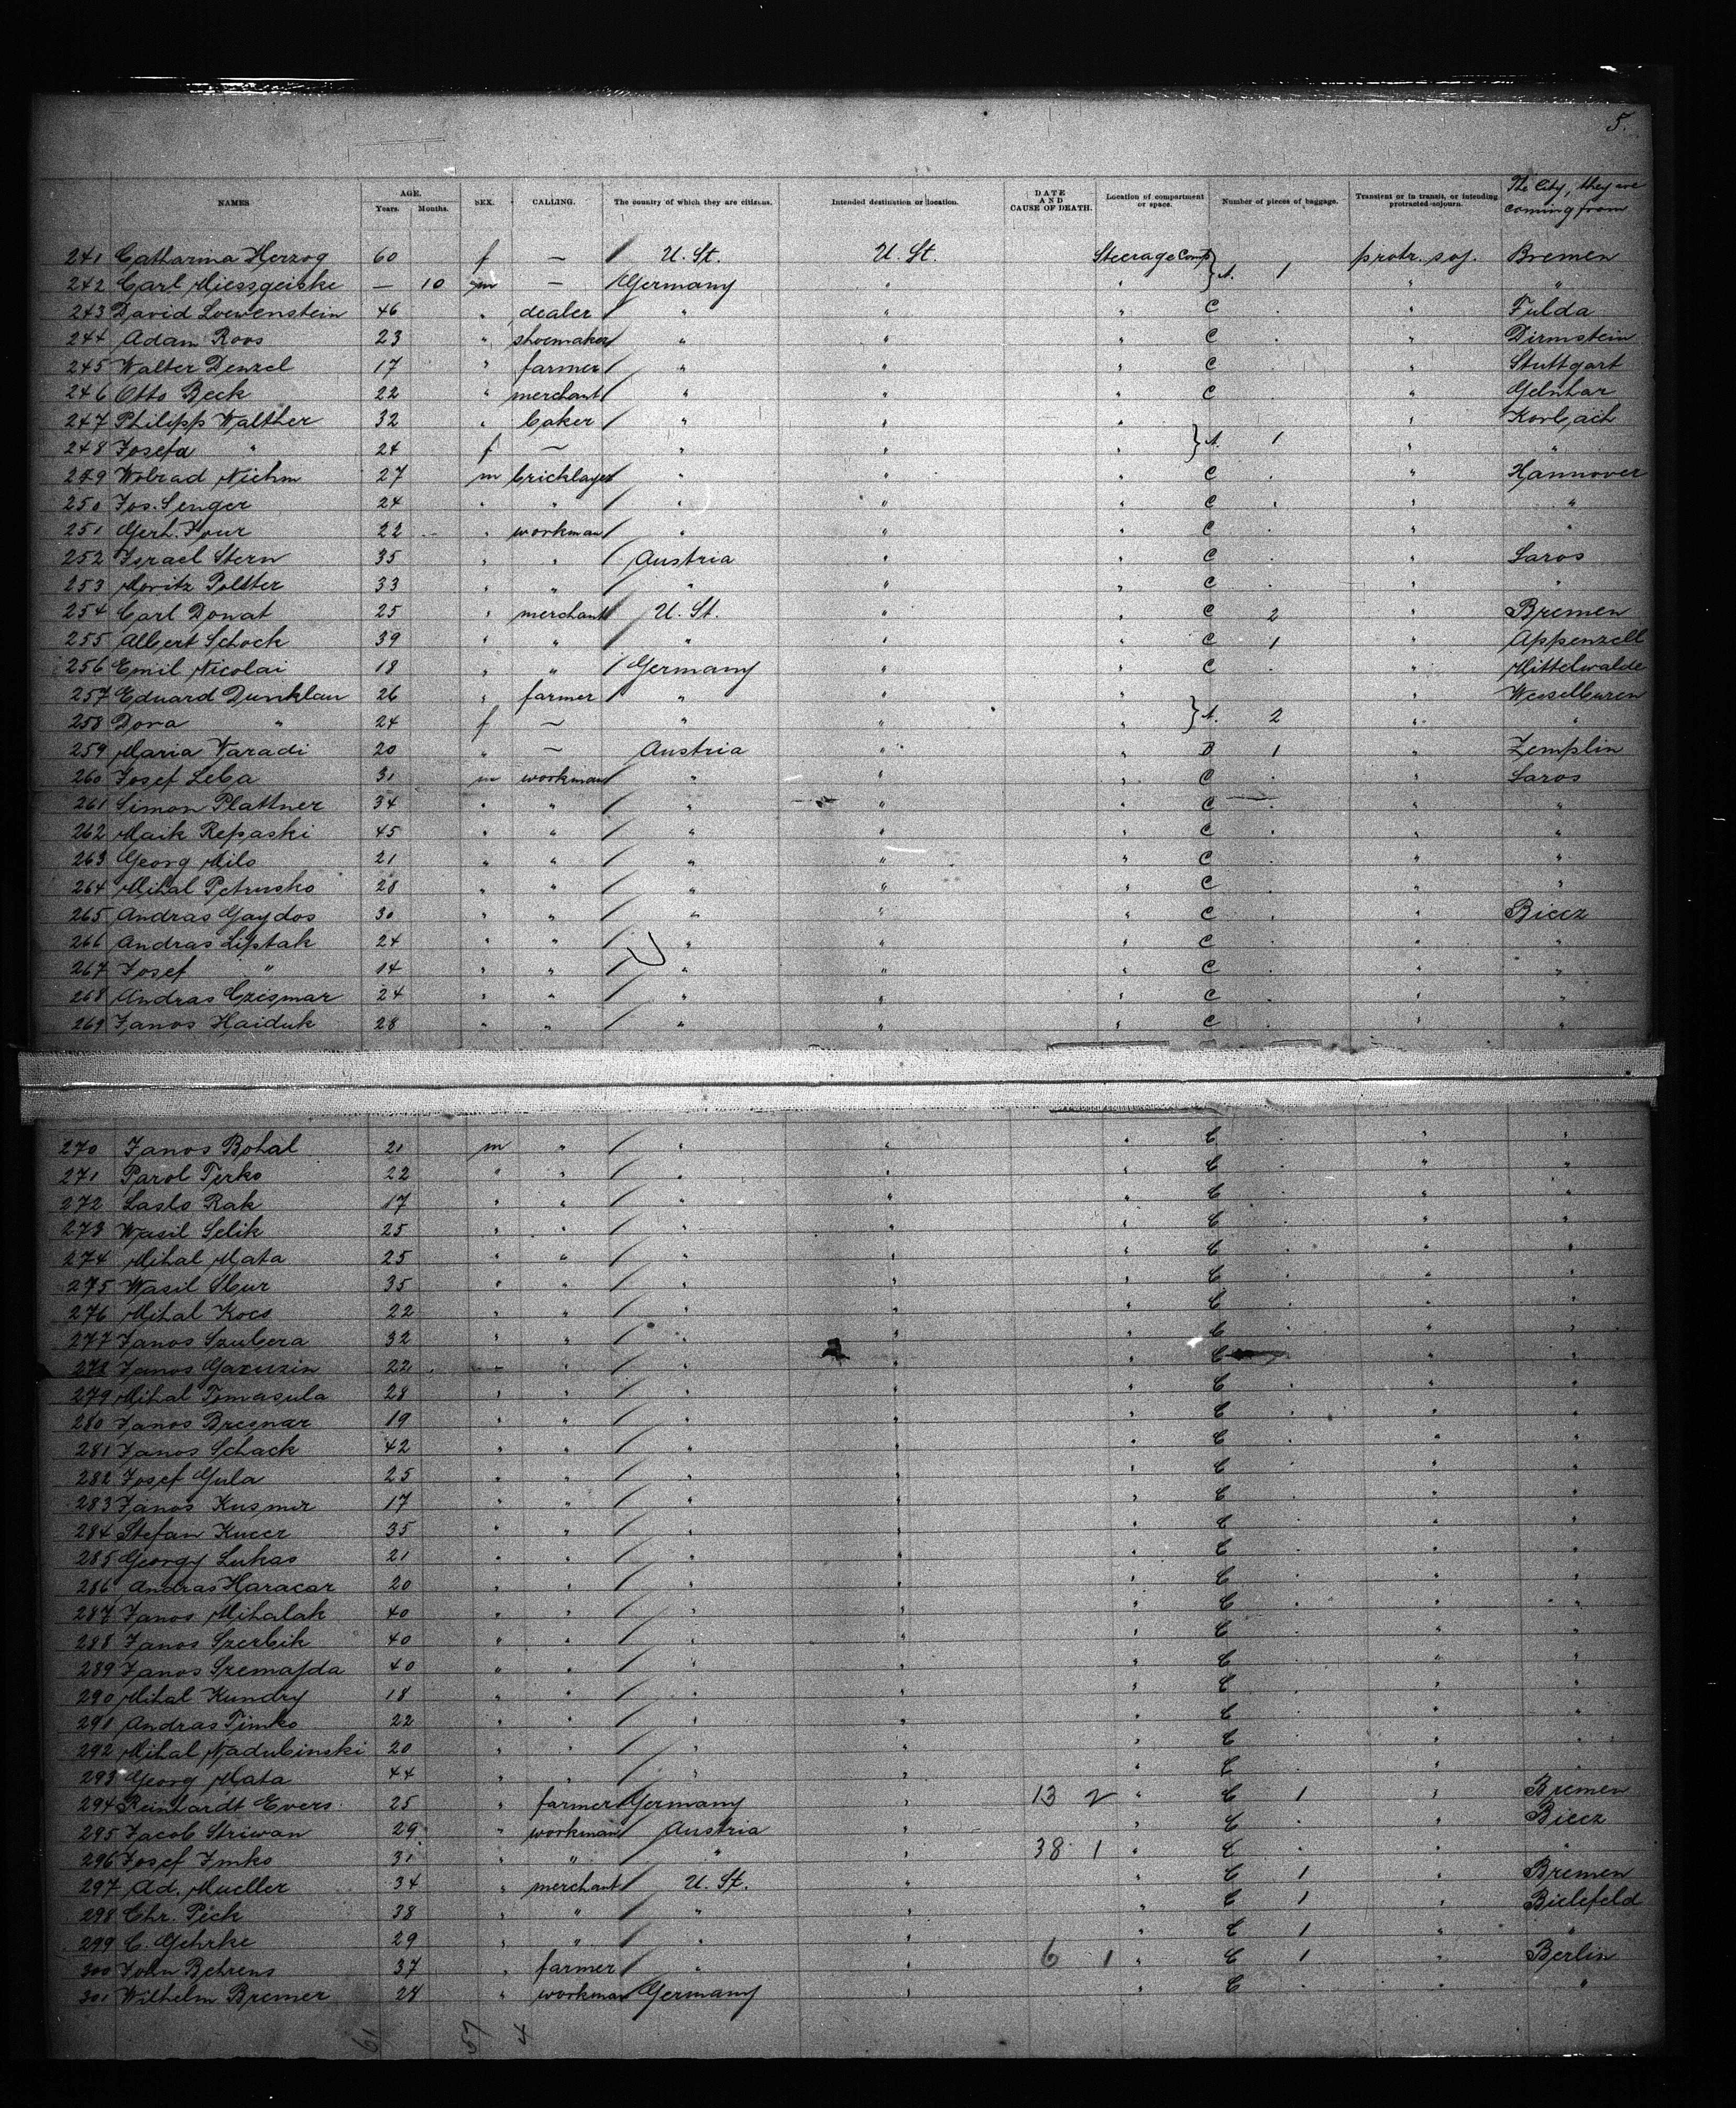 5.
NAMES AGE. Years. Months. SEX. CALLING. The country of which they are citizens. Intended destination or location. DATE AND CAUSE OF DEATH. Location of compartment or space. Number of pieces of baggage. Transient or in transit, or intending protracted sojourn. The City, they are coming from
241 Catharina Herzog 60 f — / U. St. U. St. Steerage Comp } protr. soj. Bremen
242 Carl Miessgeiske — 10 m — / Germany " " } A. 1 " "
243 David Loewenstein 46 " dealer / " " " C . " Fulda
244 Adam Roos 23 " shoemaker / " " " C . " Dirmstein
245 Walter Denzel 17 " farmer / " " " C " Stuttgart
246 Otto Beck 22 " merchant / " " " C " Gelnhar
247 Philipp Walther 32 " baker / " " " " Korbach
248 Josefa " 24 f — " " " } A. 1 " "
249 Wolrad Niehm 27 m bricklayer / " " " C . " Hannover
250 Jos. Senger 24 " " / " " " C . " "
251 Gerh. Four 22 " workman / " " " C . " "
252 Israel Stern 35 " " / Austria " " C . " Saros
253 Moritz Polster 33 " " / " " " C . " "
254 Carl Donat 25 " merchant / U. St. " " C 2 " Bremen
255 Albert Schock 39 " " / " " " C 1 " Appenzell
256 Emil Nicolai 18 " " / Germany " " C . " Mittelwalde
257 Eduard Dunklau 26 " farmer / " " " " Wesselburen
258 Dora " 24 f — " " " } A. 2 " "
259 Maria Varadi 20 " — Austria " " B 1 " Zemplin
260 Josef Leba 31 m workman / " " " C . " Saros
261 Simon Plattner 34 " " / " " " C . " "
262 Maik Repaski 45 " " / " " " C . " "
263 Georg Milo 21 " " / " " " C . " "
264 Mihal Petrusko 28 " " / " " " C . " "
265 Andras Gaydos 30 " " / " " " C . " Biecz
266 Andras Liptak 24 " " / " " " C . " "
267 Josef " 14 " " / " " " C . " "
268 Andras Czismar 24 " " / " " " C . " "
269 Janos Haiduk 28 " " / " " " C . " "
270 Janos Bohal 21 m " / " " " C . " "
271 Parol Terko 22 " " / " " " C . " "
272 Laslo Rak 17 " " / " " " C . " "
273 Wasil Selik 25 " " / " " " C . " "
274 Mihal Mata 25 " " / " " " C . " "
275 Wasil 35 " " / " " " C . " "
276 Mihal Kocs 22 " " / " " " C . " "
277 Janos Szubera 32 " " / " " " C . " "
278 Janos 22 " " / " " " C . " "
279 Mihal Tomasula 28 " " / " " " C . " "
280 Janos Bregnar 19 " " / " " " C . " "
281 Janos Schack 42 " " / " " " C . " "
282 Josef Gula 25 " " / " " " C . " "
283 Janos Kusmir 17 " " / " " " C . " "
284 Stefan Kucer 35 " " / " " " C . " "
285 Georgy Lukas 21 " " / " " " C . " "
286 Andras Haracar 20 " " / " " " C . " "
287 Janos Mihalak 40 " " / " " " C . " "
288 Janos Szerbik 40 " " / " " " C . " "
289 Janos Szemajda 40 " " / " " " C . " "
290 Mihal Kundry 18 " " / " " " C . " "
291 Andras Timko 22 " " / " " " C . " "
292 Mihal Nadubinski 20 " " / " " " C . " "
293 Georg Mata 44 " " / " " " C . " "
294 Reinhardt Evers 25 " farmer / Germany " 13 2 " C 1 " Bremen
295 Jacob Striwan 29 " workman / Austria " " C . " Biecz
296 Josef Imko 31 " " / " " 38 1 " C . " "
297 Ad. Mueller 34 " merchant / U. St. " " C 1 " Bremen
298 Chr. Pick 38 " " / " " " C 1 " Bielefeld
299 C. Gehrke 29 " " / " " " C 1 " "
300 John Behrens 37 " farmer / " " 6 1 " C 1 " Berlin
301 Wilhelm Bremer 28 " workman / Germany " " C . " "
61 57 4